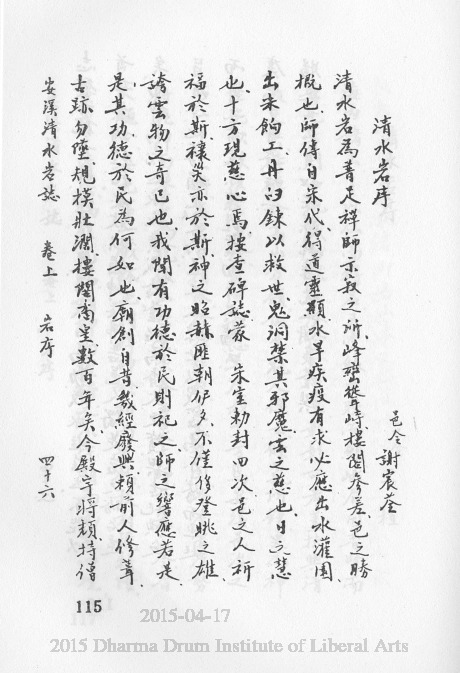 清水岩序
邑令謝宸荃
清水岩為普足禪師示寂之所、峰巒聳峙、樓閣參差、邑之勝
概也、師傳自宋代、得道靈顯、水旱疾疫有求必應、出水灌園、
出米餉工、丹臼鍊以救世、鬼洞禁其邪魔、雲之慈也、日之慧
也、十方現慈心焉、按查碑誌、蒙 宋室勅封四次、邑之人祈
福於斯、禳災亦於斯、神之昭赫匪朝伊夕、不僅修登眺之雄、
誇雲物之奇已也、我聞有功德於民則祀之、師之響應若是、
是其功德於民為何如也、廟創自昔、幾經廢興、賴前人修葺、
古跡勿墜、規模壯濶、樓閣崙皇數百年矣、今殿宇將頹、持僧
安溪清水岩誌 卷上 岩序 四十六
115
2015-04-17
2015 Dharma Drum Institute of Liberal Arts